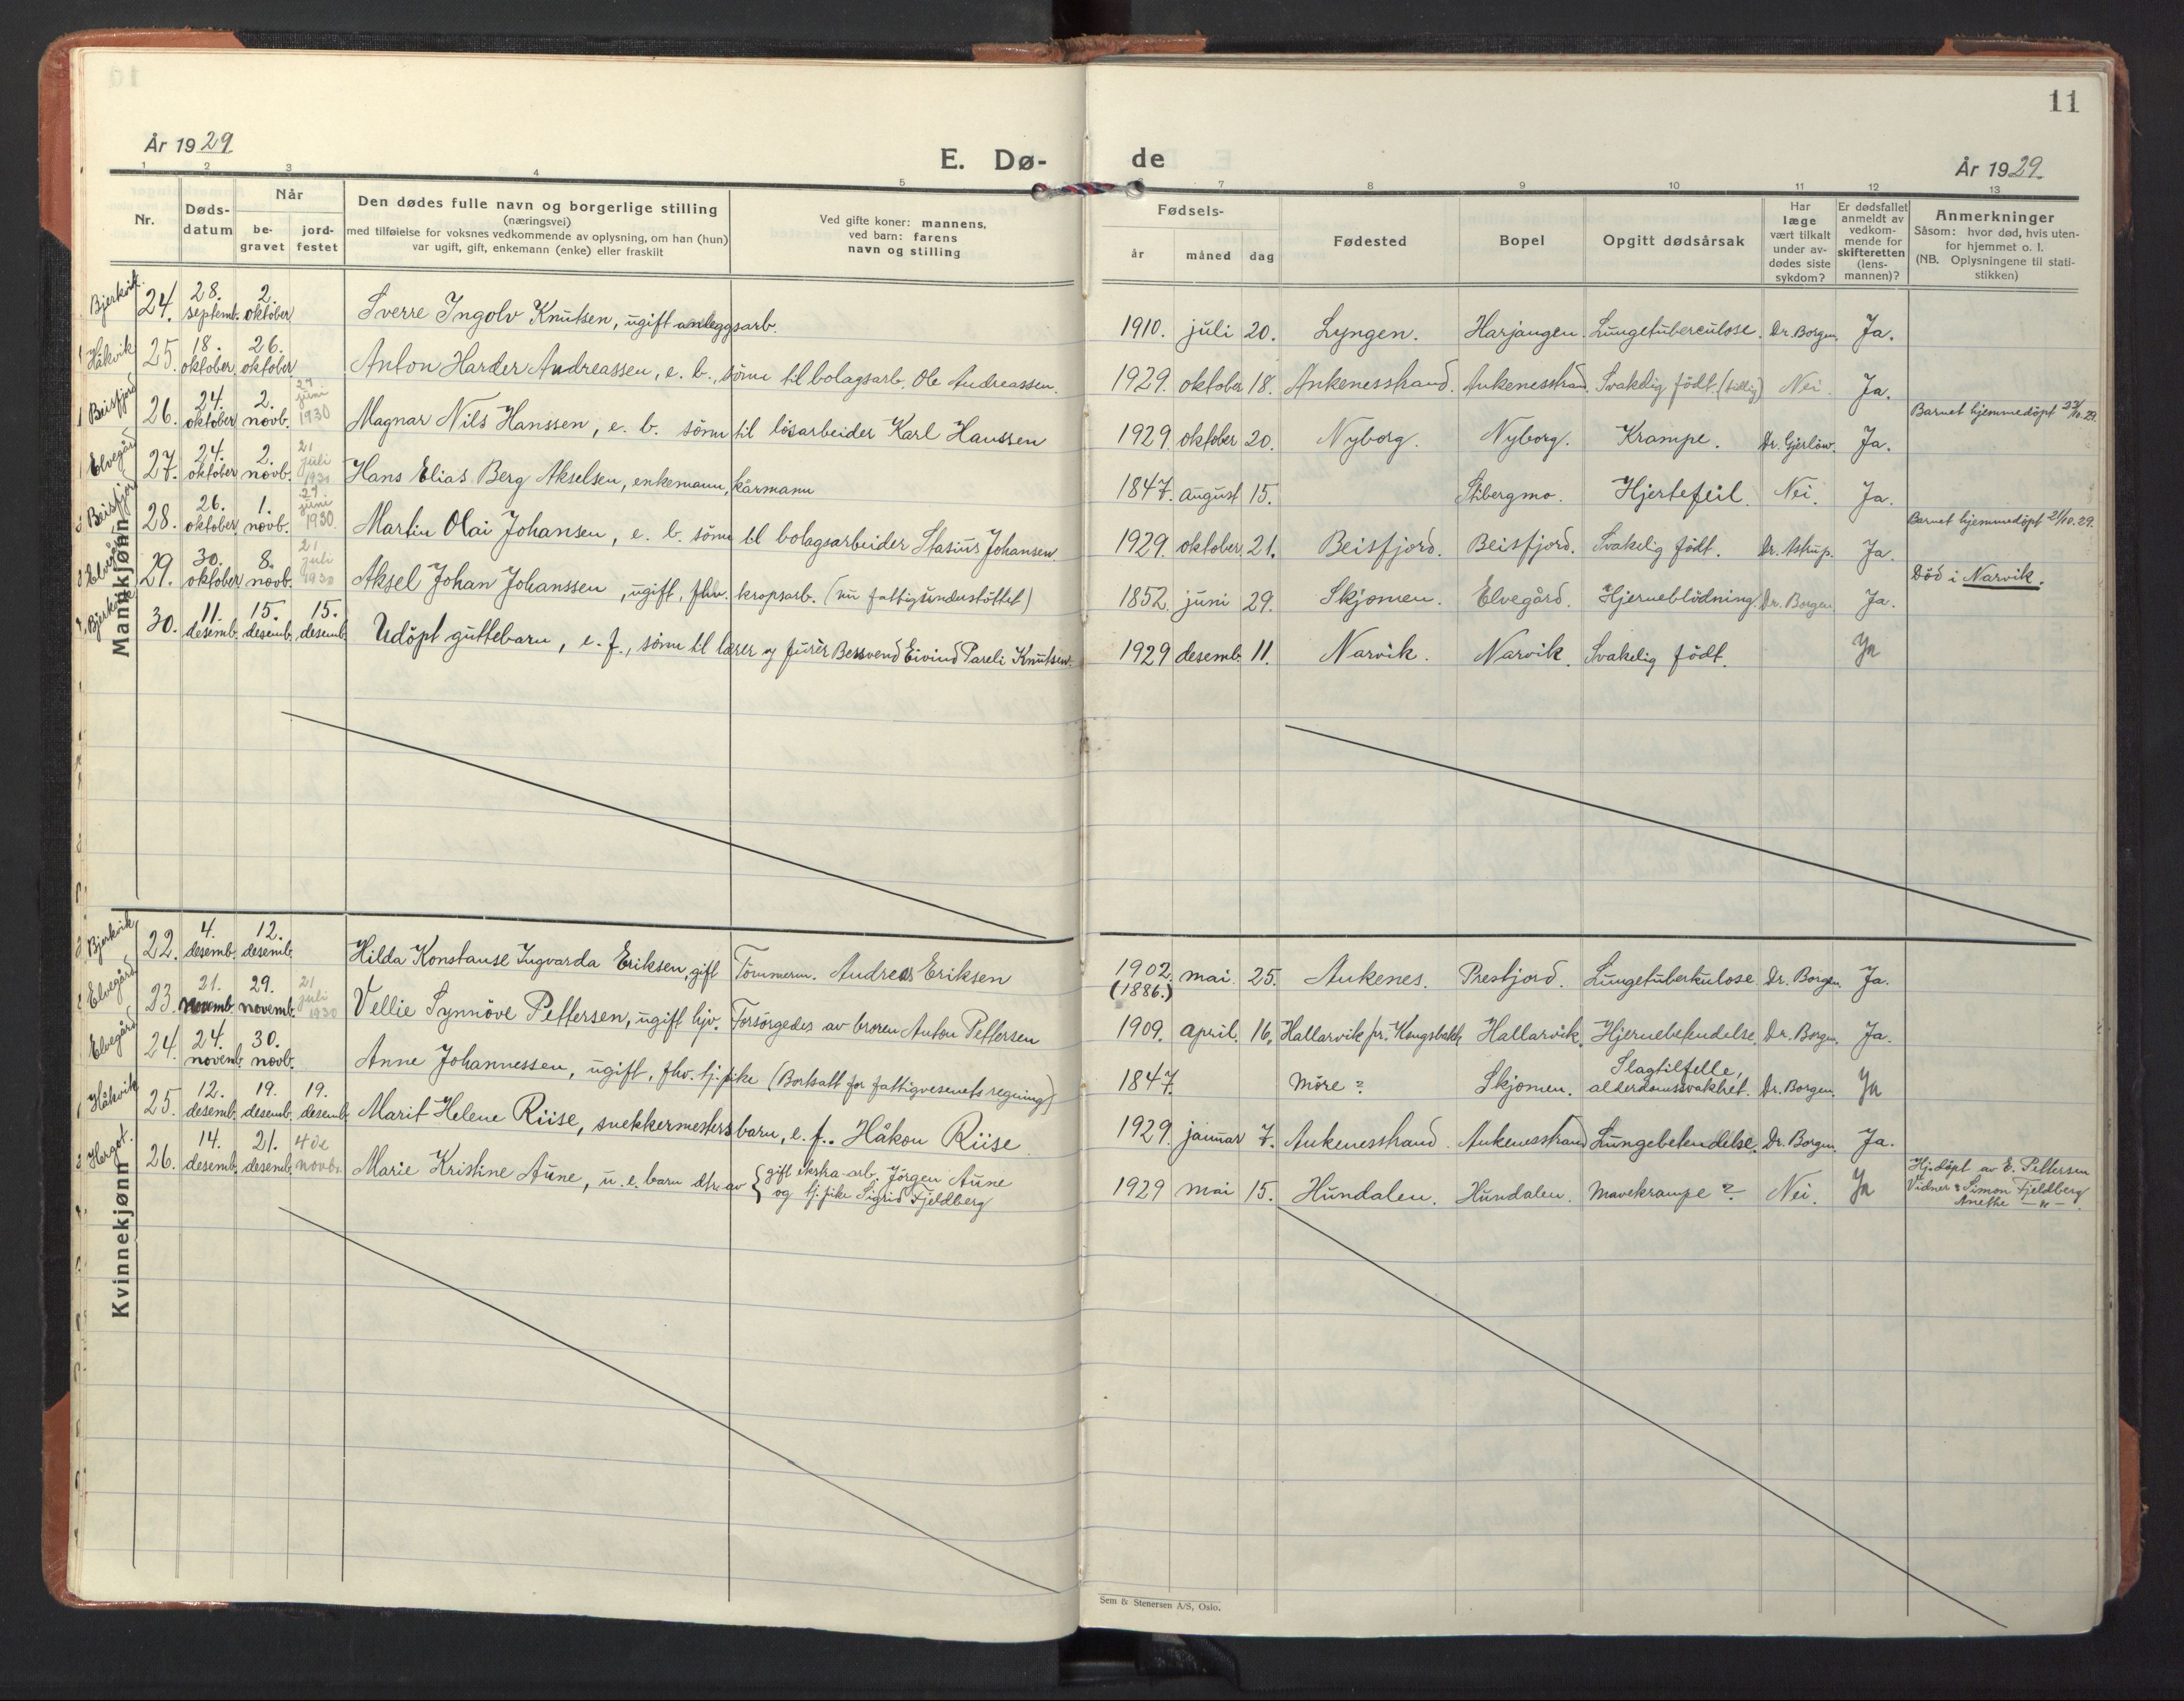 11
År 1929
E. Dø-
de
År 1929.
1 2 3 4 5
6 7 8 9 10 11 12 13
Nr.
Døds-
datum
Når
be-
gravet
jord-
festet
Den dødes fulle navn og borgerlige stilling
(næringsvei)
med tilføielse for voksnes vedkommende av oplysning, om han (hun)
var ugift, gift, enkemann (enke) eller fraskilt
Ved gifte koner: mannens,
ved barn: farens
navn og stilling
Fødsels-
år måned dag
Fødested
Bopel
Opgitt dødsårsak
Har
læge
vært tilkalt
under av-
dødes siste
sykdom?
Er dødsfallet
anmeldt av
vedkom-
mende for
skifteretten
(lens-
mannen)?
Anmerkninger
Såsom: hvor død, hvis uten-
for hjemmet o. l.
(NB. Oplysningene til stati-
stikken)
Mannkjønn
Bjerkvik. 24. 28. septemb. 2. oktober Sverre Ingolv Knutsen, ugift anleggsarb. 1910. juli 20. Lyngen. Harjangen. Lungetuberculose. Dr. Borgen. Ja.
Håkvik 25. 18. oktober. 26. oktober. Anton Harder Andreassen, e. b., sönn til bolagsarb. Ole Andreassen. 1929. oktober 18. Ankenesstrand. Ankenesstrand. Svakelig födt. (tidlig) Nei. Ja.
Beisfjord 26. 24. oktober 2. novb. 29 juni 1930 Magnar Nils Hanssen, e. b. sönn til lösarbeider Karl Hanssen 1929. oktober 20. Nyborg. Nyborg. Krampe. Dr. Gjerlöw. Ja. Barnet hjemmedöpt 23/10. 29.
Elvegård 27. 24. oktober 2. novb. 21 juli 1930 Hans Elias Berg Akselsen, enkemann, kårmann 1847. august 15. Stibergmo. Hjertefeil Nei. Ja.
Beisfjord 28. 26. oktober. 1. novb. 29. juni 1930. Martin Olai Johansen, e. b. sönn til bolagsarbeider Stasius Johansen. 1929. oktober. 21. Beisfjord. Beisfjord. Svakelig födt. Dr. Astrup. Ja. Barnet hjemmedöpt 21/10. 29.
29. 30. oktober 8. novb. 21 juli 1930 Aksel Johan Johanssen, ugift, fhv. kropsarb. (nu fattigunderstöttet) 1852. juni 29. Skjomen. Elvegård. Hjerneblödning. Dr. Borgen Ja. Död i Narvik.
30. 11. desemb. 15. desemb. 15. desemb. Udöpt guttebarn, e. f., sönn til lærer og furér Bersvend Eivind Pareli Knutsen. 1929 desemb. 11. Narvik. Narvik. Svakelig födt. Ja
Kvinnekjønn
Bjerkvik 22. 4. desemb. 12. desemb. Hilda Konstanse Ingvarda Eriksen, gift Tömmerm. Andreas Eriksen 1902. (1886.) mai 25. Ankenes. Prestjord. Lungetuberkulose. Dr. Borgen. Ja.
Elvegård 23. 21. novemb. 29. novemb. 21 juli 1930 Vellie Synnöve Pettersen, ugift hjv. Forsörgedes av broren Anton Pettersen 1909. april. 16. Hallarvik pr. Kongsbakk Hallarvik. Hjernebetendelse. Dr. Borgen. Ja.
Elvegård 24. 24. novemb. 30. novb. Anne Johannessen, ugift, fhv. tj.pike (Bortsatt for fattigvesenets regning) 1847. Möre? Skjomen. Slagtilfelle, alderdomssvakhet. Dr. Borgen. Ja
Håkvik 25. 12. desemb. 19. desemb. 19. desemb. Marit Helene Riise, snekkermesters barn, e. f.. Håkon Riise. 1929. januar 7. Ankenesstrand. Ankenesstrand Lungebetendelse. Dr. Borgen. Ja.
Hergot. 26. 14. desemb. 21. desemb. 4de novb. Marie Kristine Aune, u. e. barn dtr. av { gift ekstra-arb. Jörgen Aune
og tj. pike Sigrid Fjeldberg 1929 mai 15. Hundalen. Hundalen. Mavekrampe? Nei. Ja Hj.döpt av E. Pettersen
Vidner: Simon Fjeldberg
Anethe —"—.
Sem & Stenersen A/S, Oslo.